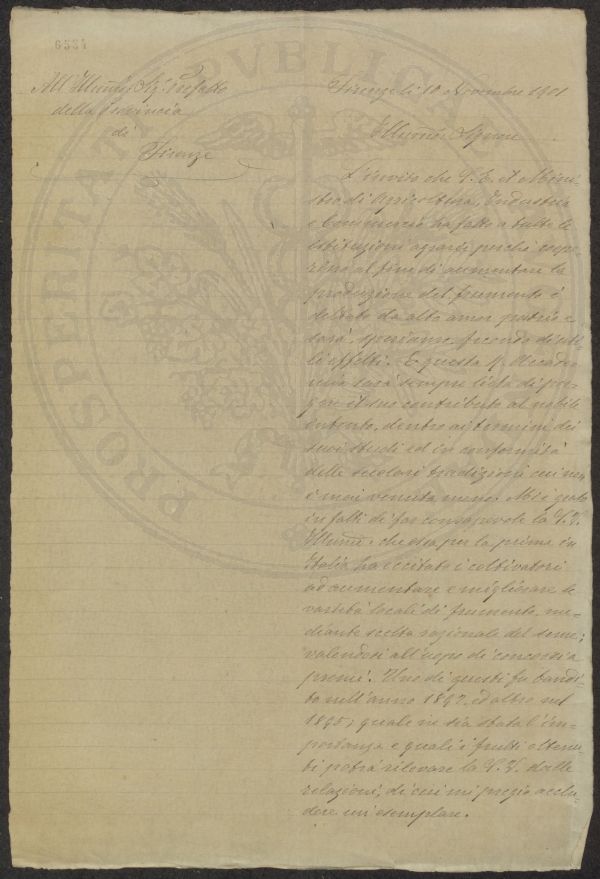 6551
All'Illmo Sig. Prefetto
della Provincia
di
Firenze
Firenze li 10 Novembre 1901
Illmo Signore
L'invito che S. E. il Mini-
stro di Agricoltura, Industria
e Commercio ha fatto a tutte le
Istituzioni agrarie perché coope-
rino al fine di aumentare la
produzione del frumento è
dettato da alto amor patrio e
sarà, speriamo, fecondo di uti-
li effetti. E questa R. Accade-
mia sarà sempre lieta di por-
gere il suo contributo al nobile
intento, dentro ai termini dei
suoi studi ed in conformità
delle secolari tradizioni cui non
è mai venuta meno. Mi è grato
infatti di far consapevole la S. V.
Illma che essa per la prima in
Italia ha eccitato i coltivatori
ad aumentare e migliorare le
varietà locali di frumento, me-
diante scelta razionale del seme;
valendosi all'uopo di concorsi a
premi. Uno di questi fu bandi-
to nell'anno 1892 ed altro nel
1895; quale ne sia stata l'im-
portanza e quali i frutti ottenu-
ti potrà rilevare la S. V. dalle
relazioni, di cui mi pregio acclu-
dere un esemplare.
PROSPERITATI PVBLICAE